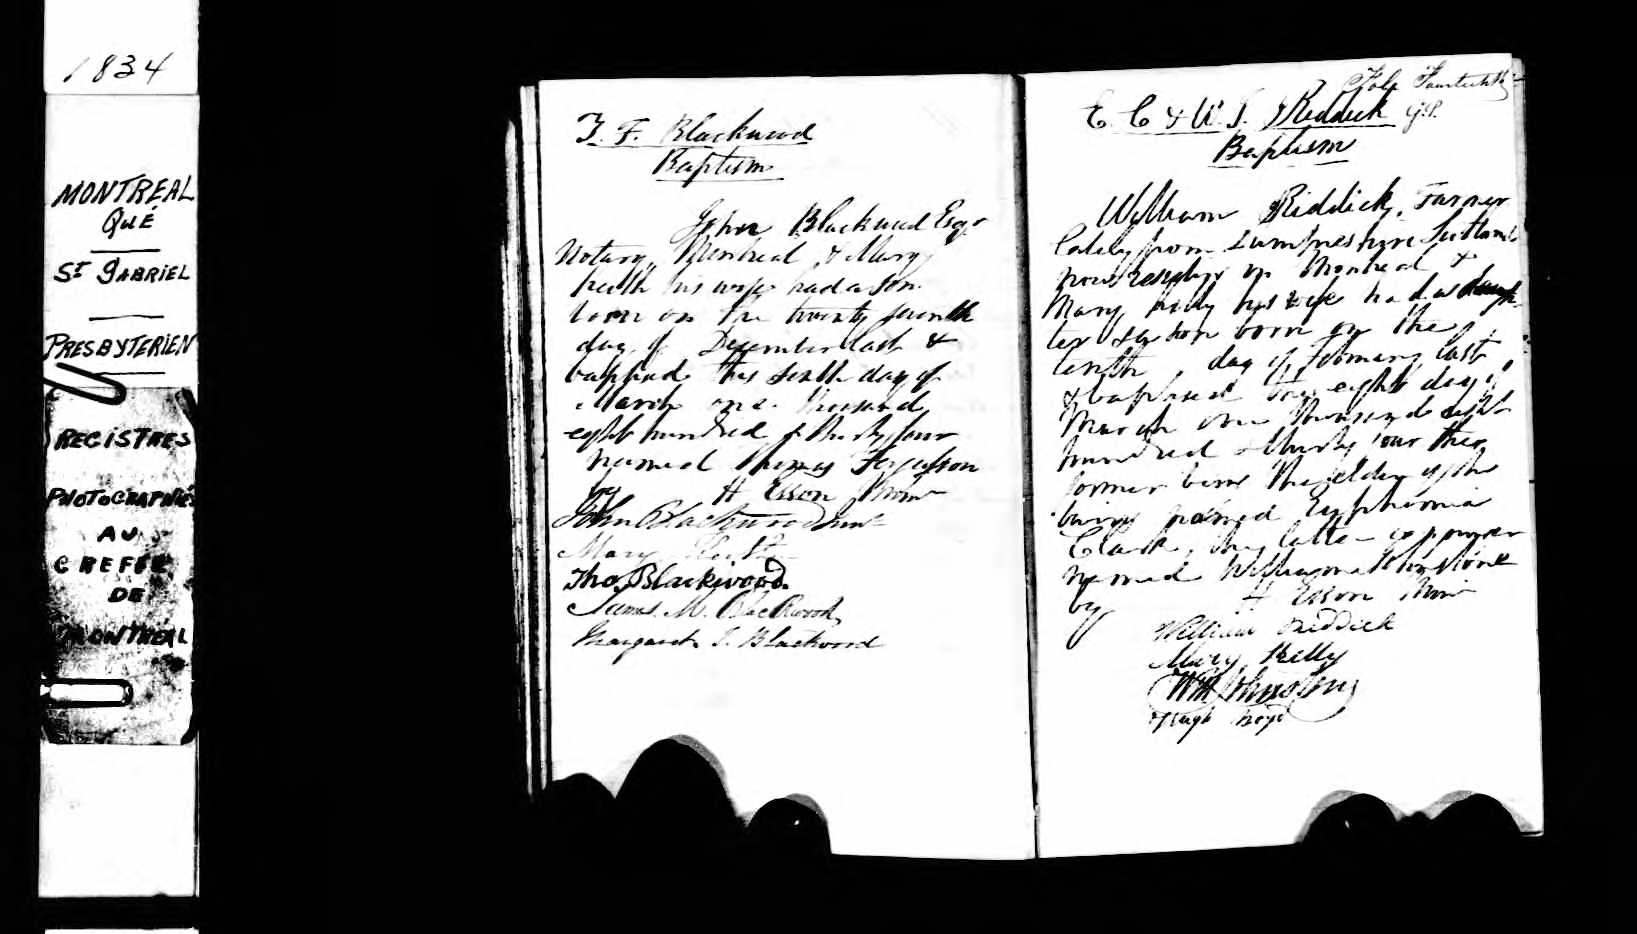 1834
MONTREAL
QUÉ
ST GABRIEL
PRESBYTERIEN
REGISTRES
PHOTOGRAPHIÉS
AU
GREFFE
DE
MONTREAL
T. F. Blackwood
Baptism
John Blackwood Esqr
Notary, Montreal & Mary
his wife had a son
born on the twenty seventh
day of December last &
baptised this sixth day of
March one thousand
eight hundred & thirty four
named Thomas Ferguson
by H Esson Minr
John Blackwood
Mary
Tho. Blackwood
James M. Blackwood
Margaret J. Blackwood
Folio Fourteenth
E. C & W. J. Riddick
Baptism
William Riddick, Farmer
lately from Dumfriesshire Scotland
now residing in Montreal &
Mary Kelly his wife had a daugh-
ter & a son born on the
tenth day of February last
& baptised this eight day of
March one thousand eight
hundred & thirty four the
former being the elder of the
twins named Euphemia
Clark, the latter
named William Johnstone
by H Esson Minr
William Riddick
Mary Kelly
Wm Johnston
Hugh Boyd